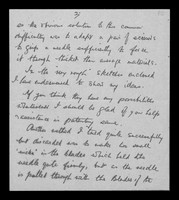 3/
as the obvious solution to this common
difficulty was to adapt a pair of scissors
to grip a needle sufficiently to force
it through thicker than average materials.
In the very rough sketches enclosed
I have endeavoured to show my ideas.
If you think they have any possibilities
whatsoever I should be glad of your help
& assistance in patenting same.
Another method I tried quite successfully
but discarded was to make two small
"nicks" in the blades which held the
needle quite firmly, but as the needle
is pulled through with the blades of the